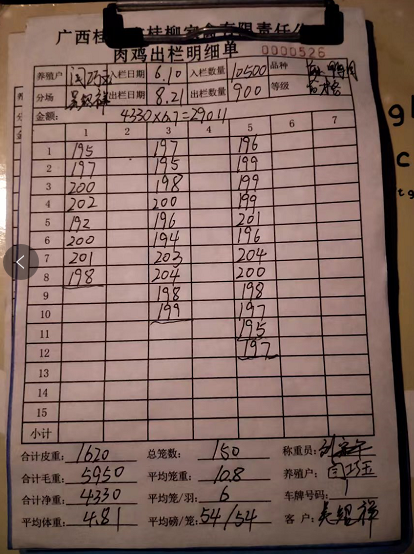 肉鸡出栏明细单 0000526
养殖户 入栏日期 6.10 入栏数量 10500 品种
分场 出栏日期 8.21 出栏数量 900 等级 合格
金额: 4330×6.7=29011
1 2 3 4 5 6 7
1 195 197 196
2 197 195 199
3 200 198 199
4 202 200 199
5 192 196 201
6 200 194 196
7 201 203 204
8 198 204 200
9 198 198
10 199 197
11 195
12 197
13
14
15
小计
合计皮重: 1620 总笼数: 150 称重员:
合计毛重: 5950 平均笼重: 10.8 养殖户:
合计净重: 4330 平均笼/羽: 6 车牌号码:
平均体重: 4.81 平均磅/笼: 54/54 客户: 吴绍祥